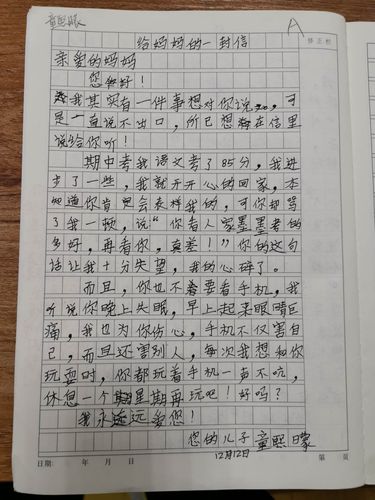 童熙朦
A
给妈妈的一封信
修正栏
亲爱的妈妈
您好！
我其实有一件事想对你说……，可
是一直说不出口，所已想在信里
说给你听！
期中考我语文考了85分，我进
步了一些，我就开开心的回家，本
知道你肯定会表样我的，可你把骂
了我一顿，说“你看人家墨墨考的
多好，再看你，真差！”你的这句
话让我十分失望，我的心碎了。
而且，你也不着要看手机，我
听说你晚上失眠，早上起来眼睛巨
痛，我也为你伤心，手机不仅害自
己，而且还害别人，每次我想和你
玩耍时，你都玩着手机一声不吭，
休息一个星期再玩吧！好吗？
我永远远爱您！
您的儿子 童熙曚
12月12日
日期： 年 月 日
第 页